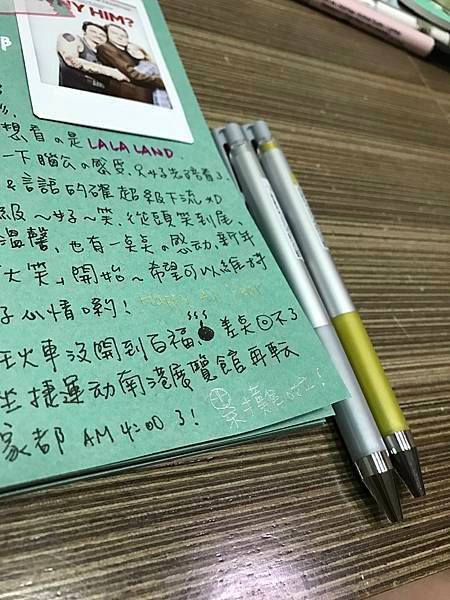 Y HIM?
P
想看の是LALALAND.
一下腦公の感受,只好先陪看了.
&言語的確超級下流XD
級~好~笑,從頭笑到尾、
溫馨、也有一點點の感动,新年
「大笑」開始~希望可以維持
好心情喲! Happy New Year
火車沒開到百福 差點回不了
坐捷運动南港展覽館再転
家都 AM 4:00 了!